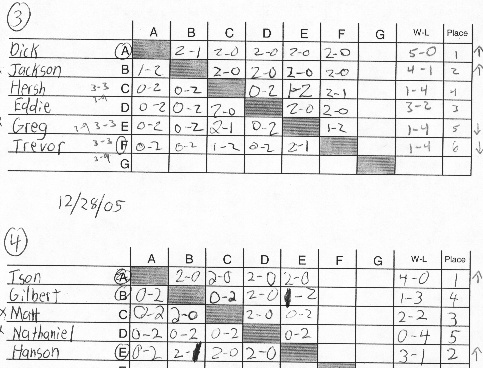 3
A B C D E F G W-L Place
Dick A 2-1 2-0 2-0 2-0 2-0 5-0 1 ↑
Jackson B 1-2 2-0 2-0 2-0 2-0 4-1 2 ↑
Hersh 3-3 C 0-2 0-2 0-2 1-2 2-1 1-4 4
Eddie D 0-2 0-2 2-0 2-0 2-0 3-2 3
Greg 3-3 E 0-2 0-2 2-1 0-2 1-2 1-4 5 ↓
Trevor 3-3 F 0-2 0-2 1-2 0-2 2-1 1-4 6 ↓
G
12/28/05
4
A B C D E F G W-L Place
Ison A 2-0 2-0 2-0 2-0 4-0 1 ↑
Gilbert B 0-2 0-2 2-0 1-2 1-3 4
x Matt C 0-2 2-0 2-0 0-2 2-2 3
Nathaniel D 0-2 0-2 0-2 0-2 0-4 5
Hanson E 0-2 2-1 2-0 2-0 3-1 2 ↑